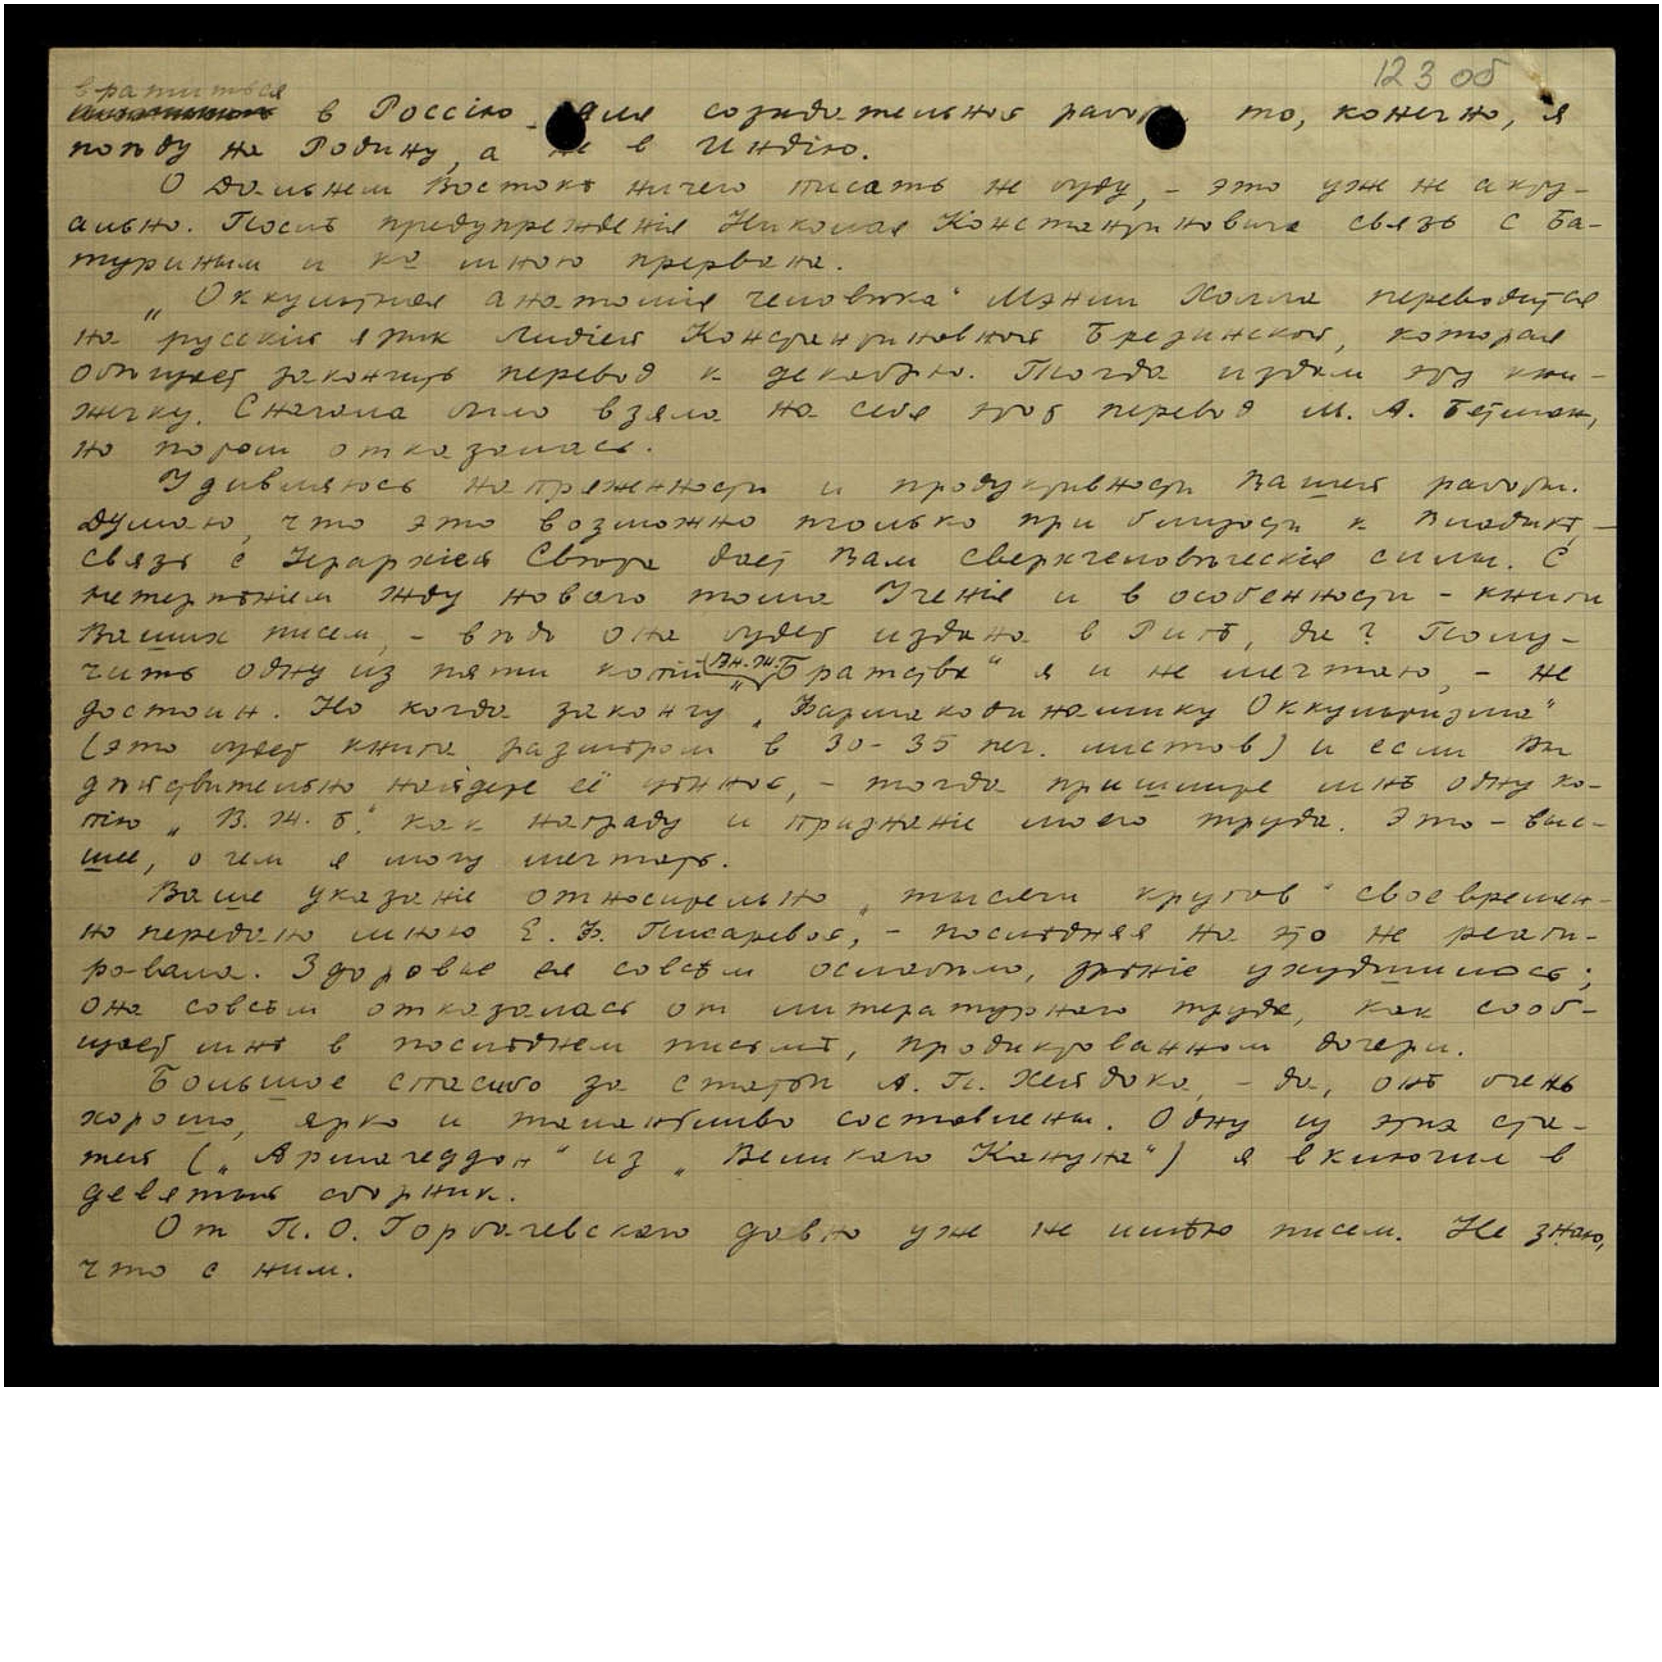 123 об
вратиться
в Россію для созидательной работы то, конечно, я
поѣду на Родину, а не в Индію.
О Дальнем Востокѣ ничего писать не буду, – это уже не акту-
ально. Послѣ предупрежденія Николая Константиновича связь с Ба-
туриным и Ко мною прервана.
„Оккультная анатомія человѣка“ Мэнли Холла переводится
на русскій язык Лидіей Константиновной Брезинской, которая
обѣщает закончить перевод к декабрю. Тогда издам эту кни-
жечку. Сначала было взяла на себя этот перевод М. А. Бетман,
но потом отказалась.
Удивляюсь напряженности и продуктивности Вашей работы.
Думаю, что это возможно только при близости к Владыкѣ, –
связь с Іерархіей Свѣта дает Вам сверхчеловѣческія силы. С
нетерпѣніем жду новаго тома Ученія и в особенности – книги
Ваших писем, – вѣдь она будет издана в Ригѣ, да? Полу-
чить одну из пяти копій „Вн. Ж. Братства“ я и не мечтаю, – не
достоин. Но когда закончу „Фармакодинамику Оккультизма“
(это будет книга размѣром в 30-35 печ. листов) и если Вы
дѣйствительно найдете её цѣнной, – тогда пришлите мнѣ одну ко-
пію „В. Ж. Б.“ как награду и признаніе моего труда. Это – выс-
шее, о чем я могу мечтать.
Ваше указаніе относительно „тысячи кругов“ своевремен-
но передано мною Е. Ф. Писаревой, – послѣдняя на это не реаги-
ровала. Здоровье ея совсѣм ослабло, зрѣніе ухудшилось;
она совсѣм отказалась от литературнаго труда, как сооб-
щает мнѣ в послѣднем письмѣ, продиктованном дочери.
Большое спасибо за статьи А. П. Хейдока, – да, онѣ очень
хорошо, ярко и талантливо составлены. Одну из этих ста-
тей („Армагеддон“ из „Великаго Кануна“) я включил в
девятый сборник.
От П. О. Горбачевскаго давно уже не имѣю писем. Не знаю,
что с ним.